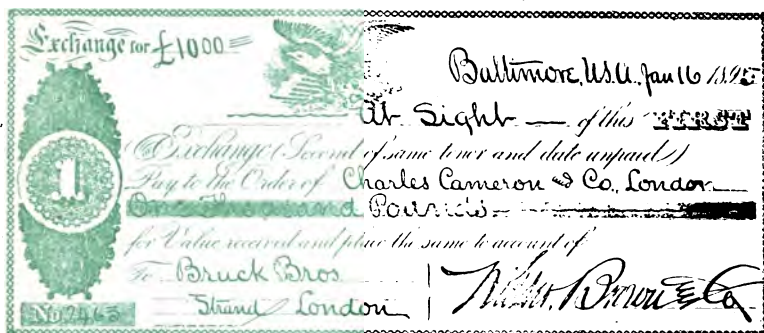 Exchange for £1000 =
Baltimore, U.S.A. Jan 16 1895
At Sight — of this FIRST
1
of Exchange (Second of same tenor and date unpaid)
Pay to the Order of Charles Cameron and Co., London
One Thousand Pounds
for Value received and place the same to account of
To Bruck Bros
Strand London
Brown & Co
No 2463